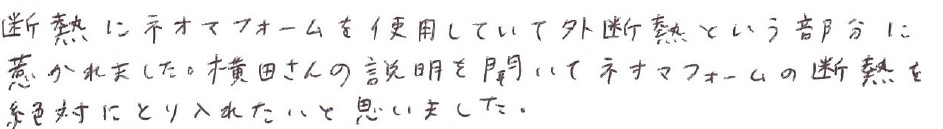 断熱にネオマフォームを使用していて外断熱という部分に
惹かれました。横田さんの説明を聞いてネオマフォームの断熱を
絶対にとり入れたいと思いました。